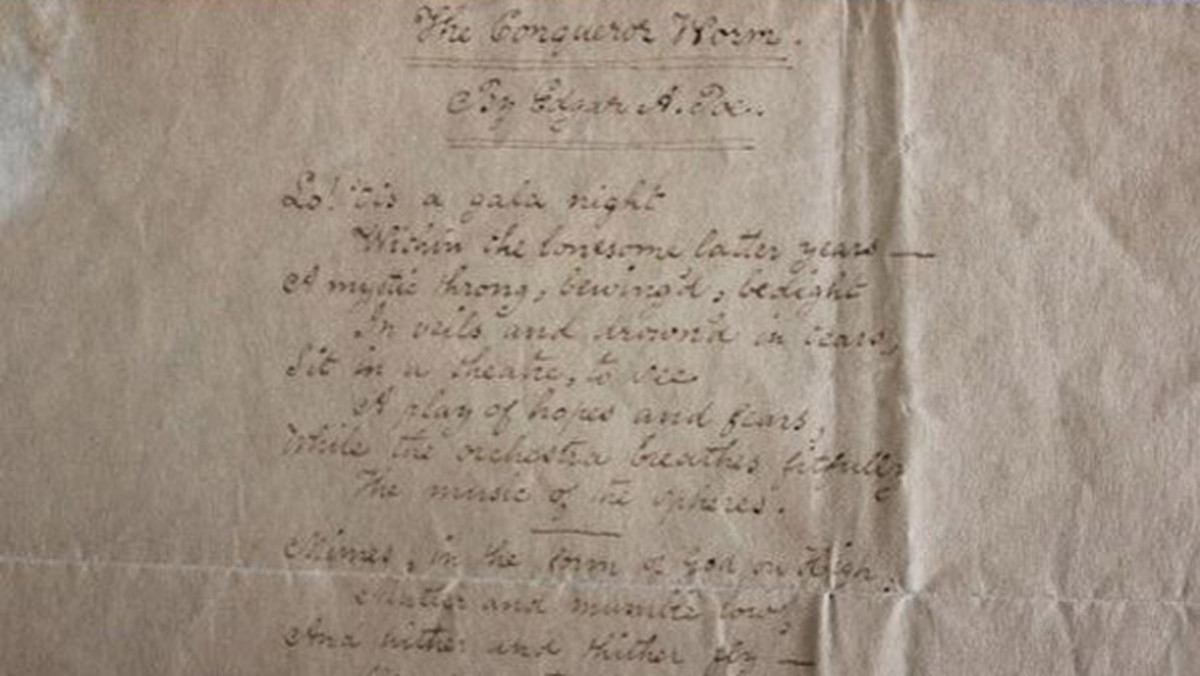 The Conqueror Worm.
By Edgar A. Poe.
Lo! 'tis a gala night
Within the lonesome latter years —
A mystic throng, bewing'd, bedight
In veils and drown'd in tears,
Sit in a theatre, to see
A play of hopes and fears,
While the orchestra breathes fitfully
The music of the spheres.
Mimes, in the form of God on High,
Mutter and mumble low,
And hither and thither fly —